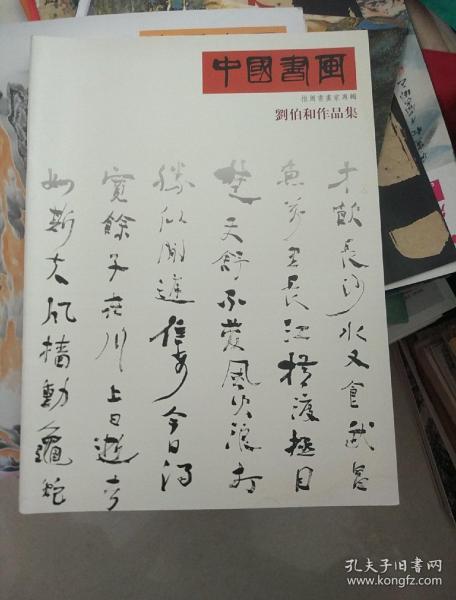 中國書畫
書畫家專輯
劉伯和作品集
才飲長沙水又食武昌
魚萬里長江橫渡極目
楚天舒不管風吹浪打
勝似閒庭信步今日得
寬餘子在川上曰逝者
如斯夫風檣動龜蛇
孔夫子旧书网
www.kongfz.com